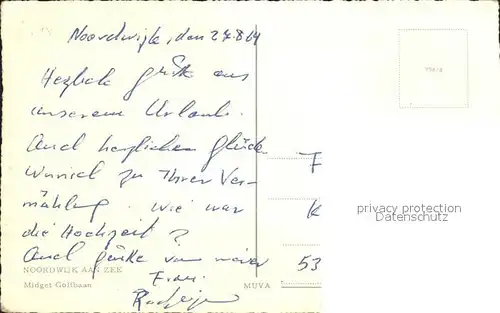 Noordwijk, den 27.8.64
Herzliche Grüße aus
unserem Urlaub.
Auch herzlichen Glück
wunsch zu Ihrer Ver-
mählung. Wie war
die Hochzeit?
Auch Grüße von meiner
Frau.
F
K
53
privacy protection
Datenschutz
NOORDWIJK AAN ZEE
Midget Golfbaan
MUVA